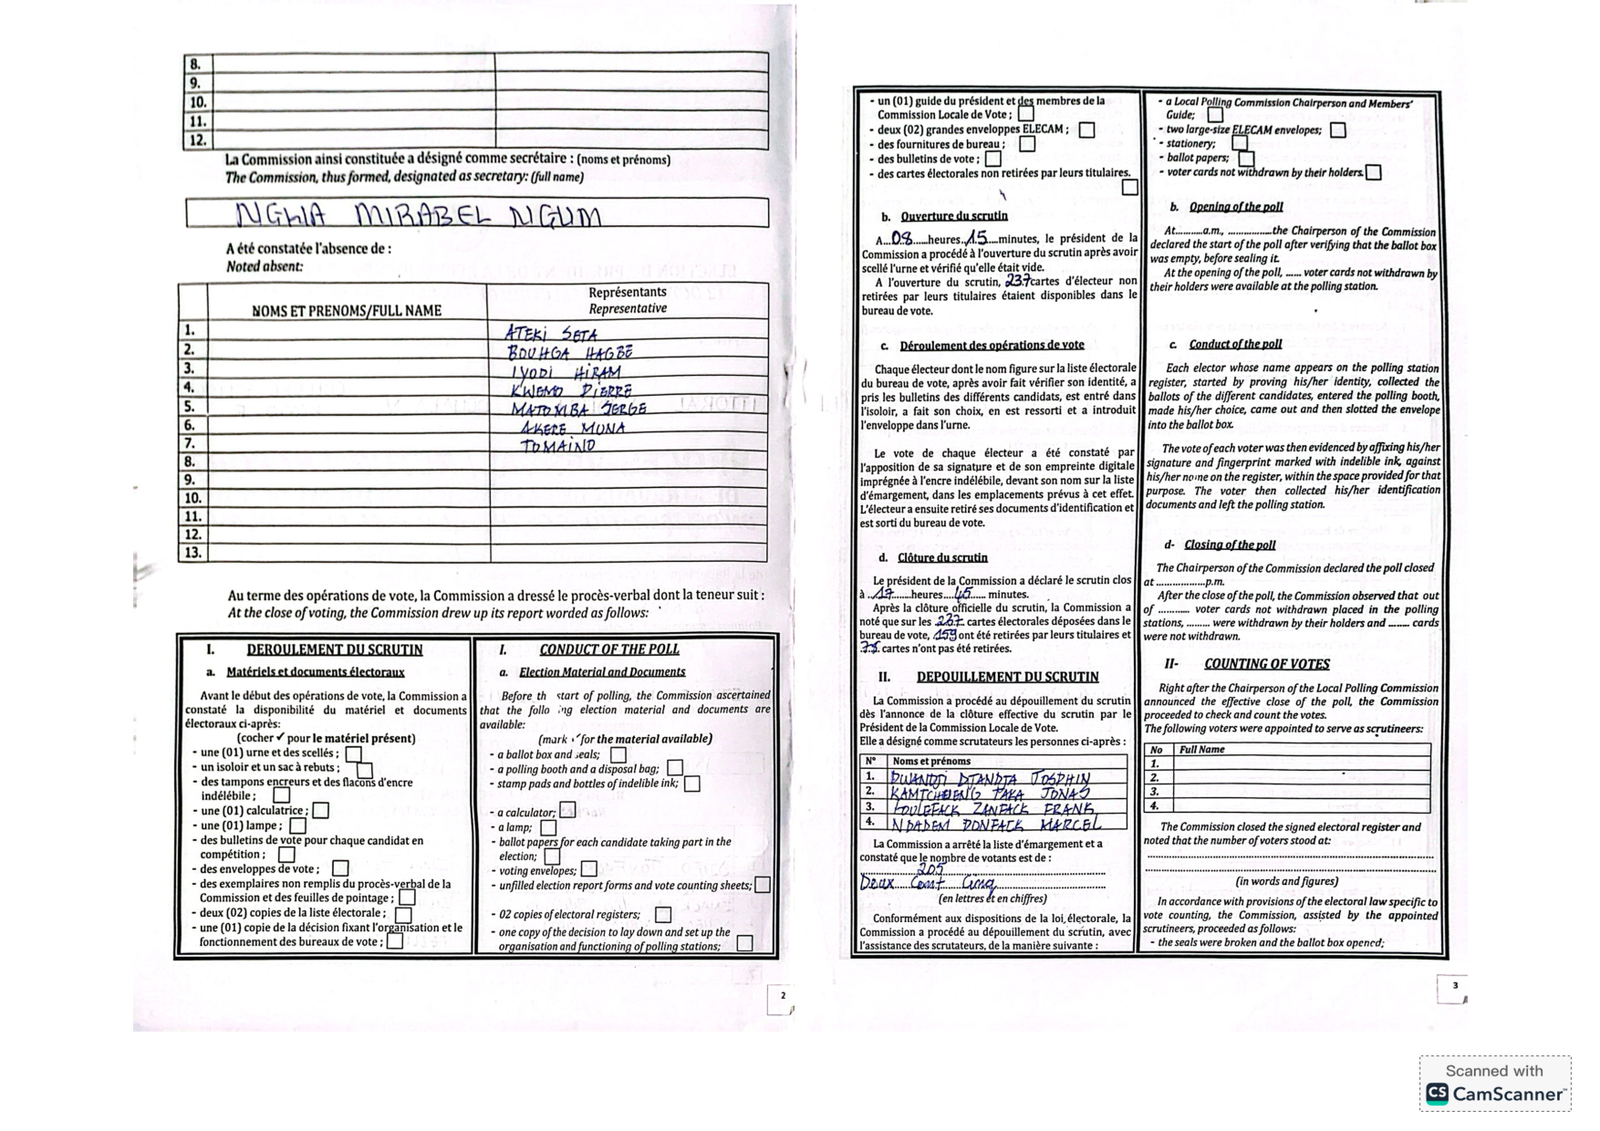 8.
9.
10.
11.
12.
La Commission ainsi constituée a désigné comme secrétaire : (noms et prénoms)
The Commission, thus formed, designated as secretary: (full name)
NGWA MIRABEL NGUM
A été constatée l'absence de :
Noted absent:
NOMS ET PRENOMS/FULL NAME
Représentants
Representative
1. ATEKI SETA
2. BOUHGA HAGBE
3. IYODI HIRAM
4. KWEMO PIERRE
5. MATOMBA SERGE
6. AKERE MUNA
7. TOMAINO
8.
9.
10.
11.
12.
13.
Au terme des opérations de vote, la Commission a dressé le procès-verbal dont la teneur suit :
At the close of voting, the Commission drew up its report worded as follows:
I. DEROULEMENT DU SCRUTIN
a. Matériels et documents électoraux
Avant le début des opérations de vote, la Commission a
constaté la disponibilité du matériel et documents
électoraux ci-après:
(cocher ✓ pour le matériel présent)
- une (01) urne et des scellés ;
- un isoloir et un sac à rebuts ;
- des tampons encreurs et des flacons d'encre
indélébile ;
- une (01) calculatrice ;
- une (01) lampe ;
- des bulletins de vote pour chaque candidat en
compétition ;
- des enveloppes de vote ;
- des exemplaires non remplis du procès-verbal de la
Commission et des feuilles de pointage ;
- deux (02) copies de la liste électorale ;
- une (01) copie de la décision fixant l'organisation et le
fonctionnement des bureaux de vote ;
I. CONDUCT OF THE POLL
a. Election Material and Documents
Before th start of polling, the Commission ascertained
that the follo ing election material and documents are
available:
(mark ✓ for the material available)
- a ballot box and seals;
- a polling booth and a disposal bag;
- stamp pads and bottles of indelible ink;
- a calculator;
- a lamp;
- ballot papers for each candidate taking part in the
election;
- voting envelopes;
- unfilled election report forms and vote counting sheets;
- 02 copies of electoral registers;
- one copy of the decision to lay down and set up the
organisation and functioning of polling stations;
2
- un (01) guide du président et des membres de la
Commission Locale de Vote ;
- deux (02) grandes enveloppes ELECAM ;
- des fournitures de bureau ;
- des bulletins de vote ;
- des cartes électorales non retirées par leurs titulaires.
b. Ouverture du scrutin
A...08.....heures..15....minutes, le président de la
Commission a procédé à l'ouverture du scrutin après avoir
scellé l'urne et vérifié qu'elle était vide.
A l'ouverture du scrutin, 237 cartes d'électeur non
retirées par leurs titulaires étaient disponibles dans le
bureau de vote.
c. Déroulement des opérations de vote
Chaque électeur dont le nom figure sur la liste électorale
du bureau de vote, après avoir fait vérifier son identité, a
pris les bulletins des différents candidats, est entré dans
l'isoloir, a fait son choix, en est ressorti et a introduit
l'enveloppe dans l'urne.
Le vote de chaque électeur a été constaté par
l'apposition de sa signature et de son empreinte digitale
imprégnée à l'encre indélébile, devant son nom sur la liste
d'émargement, dans les emplacements prévus à cet effet.
L'électeur a ensuite retiré ses documents d'identification et
est sorti du bureau de vote.
d. Clôture du scrutin
Le président de la Commission a déclaré le scrutin clos
à ..17......heures....45..... minutes.
Après la clôture officielle du scrutin, la Commission a
noté que sur les ..237.. cartes électorales déposées dans le
bureau de vote, 159 ont été retirées par leurs titulaires et
cartes n'ont pas été retirées.
II. DEPOUILLEMENT DU SCRUTIN
La Commission a procédé au dépouillement du scrutin
dès l'annonce de la clôture effective du scrutin par le
Président de la Commission Locale de Vote.
Elle a désigné comme scrutateurs les personnes ci-après :
N° Noms et prénoms
1. DJANDJA JOSPHIN
2. KAMTCHOENG TAKA JONAS
3. FOULEFACK ZANFACK FRANK
4. NDADEM DONFACK MARCEL
La Commission a arrêté la liste d'émargement et a
constaté que le nombre de votants est de :
205
Deux Cent Cinq
(en lettres et en chiffres)
Conformément aux dispositions de la loi électorale, la
Commission a procédé au dépouillement du scrutin, avec
l'assistance des scrutateurs, de la manière suivante :
- a Local Polling Commission Chairperson and Members'
Guide;
- two large-size ELECAM envelopes;
- stationery;
- ballot papers;
- voter cards not withdrawn by their holders.
b. Opening of the poll
At..........a.m., ...............the Chairperson of the Commission
declared the start of the poll after verifying that the ballot box
was empty, before sealing it.
At the opening of the poll, ...... voter cards not withdrawn by
their holders were available at the polling station.
c. Conduct of the poll
Each elector whose name appears on the polling station
register, started by proving his/her identity, collected the
ballots of the different candidates, entered the polling booth,
made his/her choice, came out and then slotted the envelope
into the ballot box.
The vote of each voter was then evidenced by affixing his/her
signature and fingerprint marked with indelible ink, against
his/her name on the register, within the space provided for that
purpose. The voter then collected his/her identification
documents and left the polling station.
d- Closing of the poll
The Chairperson of the Commission declared the poll closed
at ..................p.m.
After the close of the poll, the Commission observed that out
of ........... voter cards not withdrawn placed in the polling
stations, ......... were withdrawn by their holders and ........ cards
were not withdrawn.
II- COUNTING OF VOTES
Right after the Chairperson of the Local Polling Commission
announced the effective close of the poll, the Commission
proceeded to check and count the votes.
The following voters were appointed to serve as scrutineers:
No Full Name
1.
2.
3.
4.
The Commission closed the signed electoral register and
noted that the number of voters stood at:
(in words and figures)
In accordance with provisions of the electoral law specific to
vote counting, the Commission, assisted by the appointed
scrutineers, proceeded as follows:
- the seals were broken and the ballot box opened;
3
Scanned with
CS CamScanner